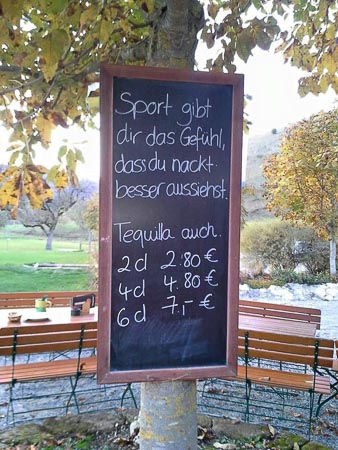 Sport gibt
dir das Gefühl,
dass du nackt
besser aussiehst.
Tequilla auch.
2cl 2.80 €
4cl 4.80 €
6cl 7,- €